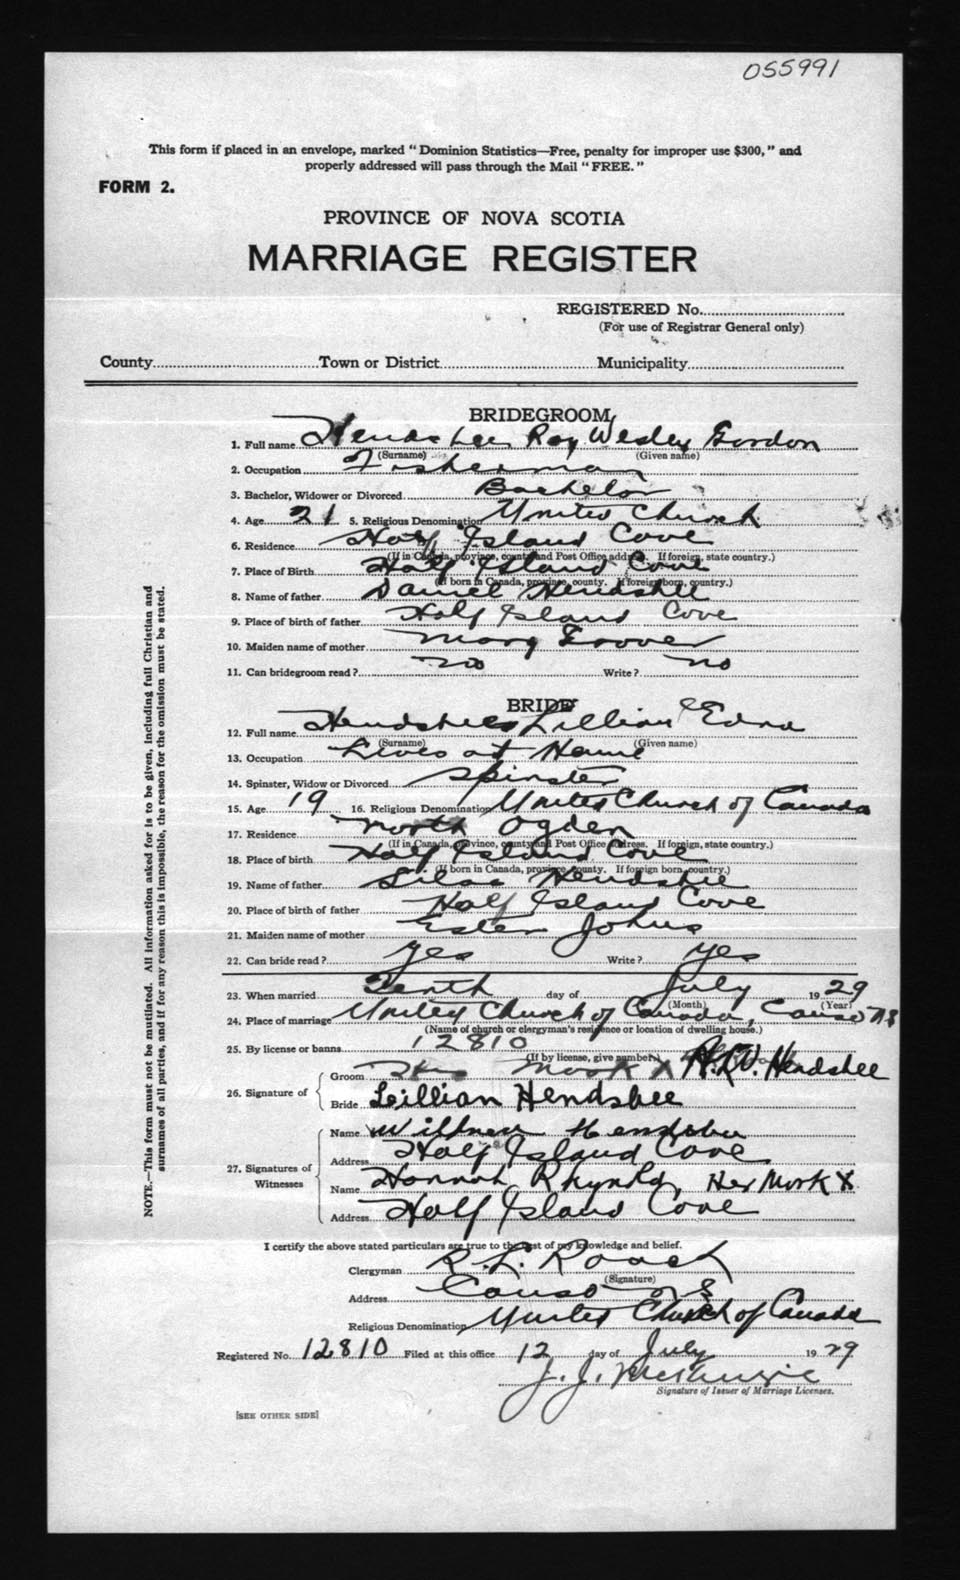 055991
This form if placed in an envelope, marked "Dominion Statistics—Free, penalty for improper use $300," and
properly addressed will pass through the Mail "FREE."
FORM 2.
PROVINCE OF NOVA SCOTIA
MARRIAGE REGISTER
REGISTERED No.
(For use of Registrar General only)
County Town or District Municipality
BRIDEGROOM
1. Full name Hendsbee Roy Wesley Gordon
(Surname) (Given name)
2. Occupation Fisherman
3. Bachelor, Widower or Divorced Bachelor
4. Age 21 5. Religious Denomination United Church
6. Residence Half Island Cove
(If in Canada, province, county and Post Office address. If foreign, state country.)
7. Place of Birth Half Island Cove
(If born in Canada, province, county. If foreign born, country.)
8. Name of father Daniel Hendsbee
9. Place of birth of father Half Island Cove
10. Maiden name of mother Mary Grover
11. Can bridegroom read? no Write? no
BRIDE
12. Full name Hendsbee Lillian Edna
(Surname) (Given name)
13. Occupation Lives at Home
14. Spinster, Widow or Divorced Spinster
15. Age 19 16. Religious Denomination United Church of Canada
17. Residence North Ogden
(If in Canada, province, county and Post Office address. If foreign, state country.)
18. Place of birth Half Island Cove
(If born in Canada, province, county. If foreign born, country.)
19. Name of father Silas Hendsbee
20. Place of birth of father Half Island Cove
21. Maiden name of mother Ester Johns
22. Can bride read? yes Write? yes
23. When married Tenth day of July 1929
(Month) (Year)
24. Place of marriage United Church of Canada, Canso N S
(Name of church or clergyman's residence or location of dwelling house.)
25. By license or banns 12810
(If by license, give number)
26. Signature of Groom His Mark X R.W. Hendsbee
Bride Lillian Hendsbee
27. Signatures of Witnesses
Name Hendsbee
Address Half Island Cove
Name Hannah Rhynold, Her Mark X
Address Half Island Cove
I certify the above stated particulars are true to the best of my knowledge and belief.
Clergyman R. L. Roach
(Signature)
Address Canso N S
Religious Denomination United Church of Canada
Registered No. 12810 Filed at this office 12 day of July 1929
J. J. McKenzie
Signature of Issuer of Marriage Licenses.
[SEE OTHER SIDE]
NOTE.—This form must not be mutilated. All information asked for is to be given, including full Christian and
surnames of all parties, and if for any reason this is impossible, the reason for the omission must be stated.